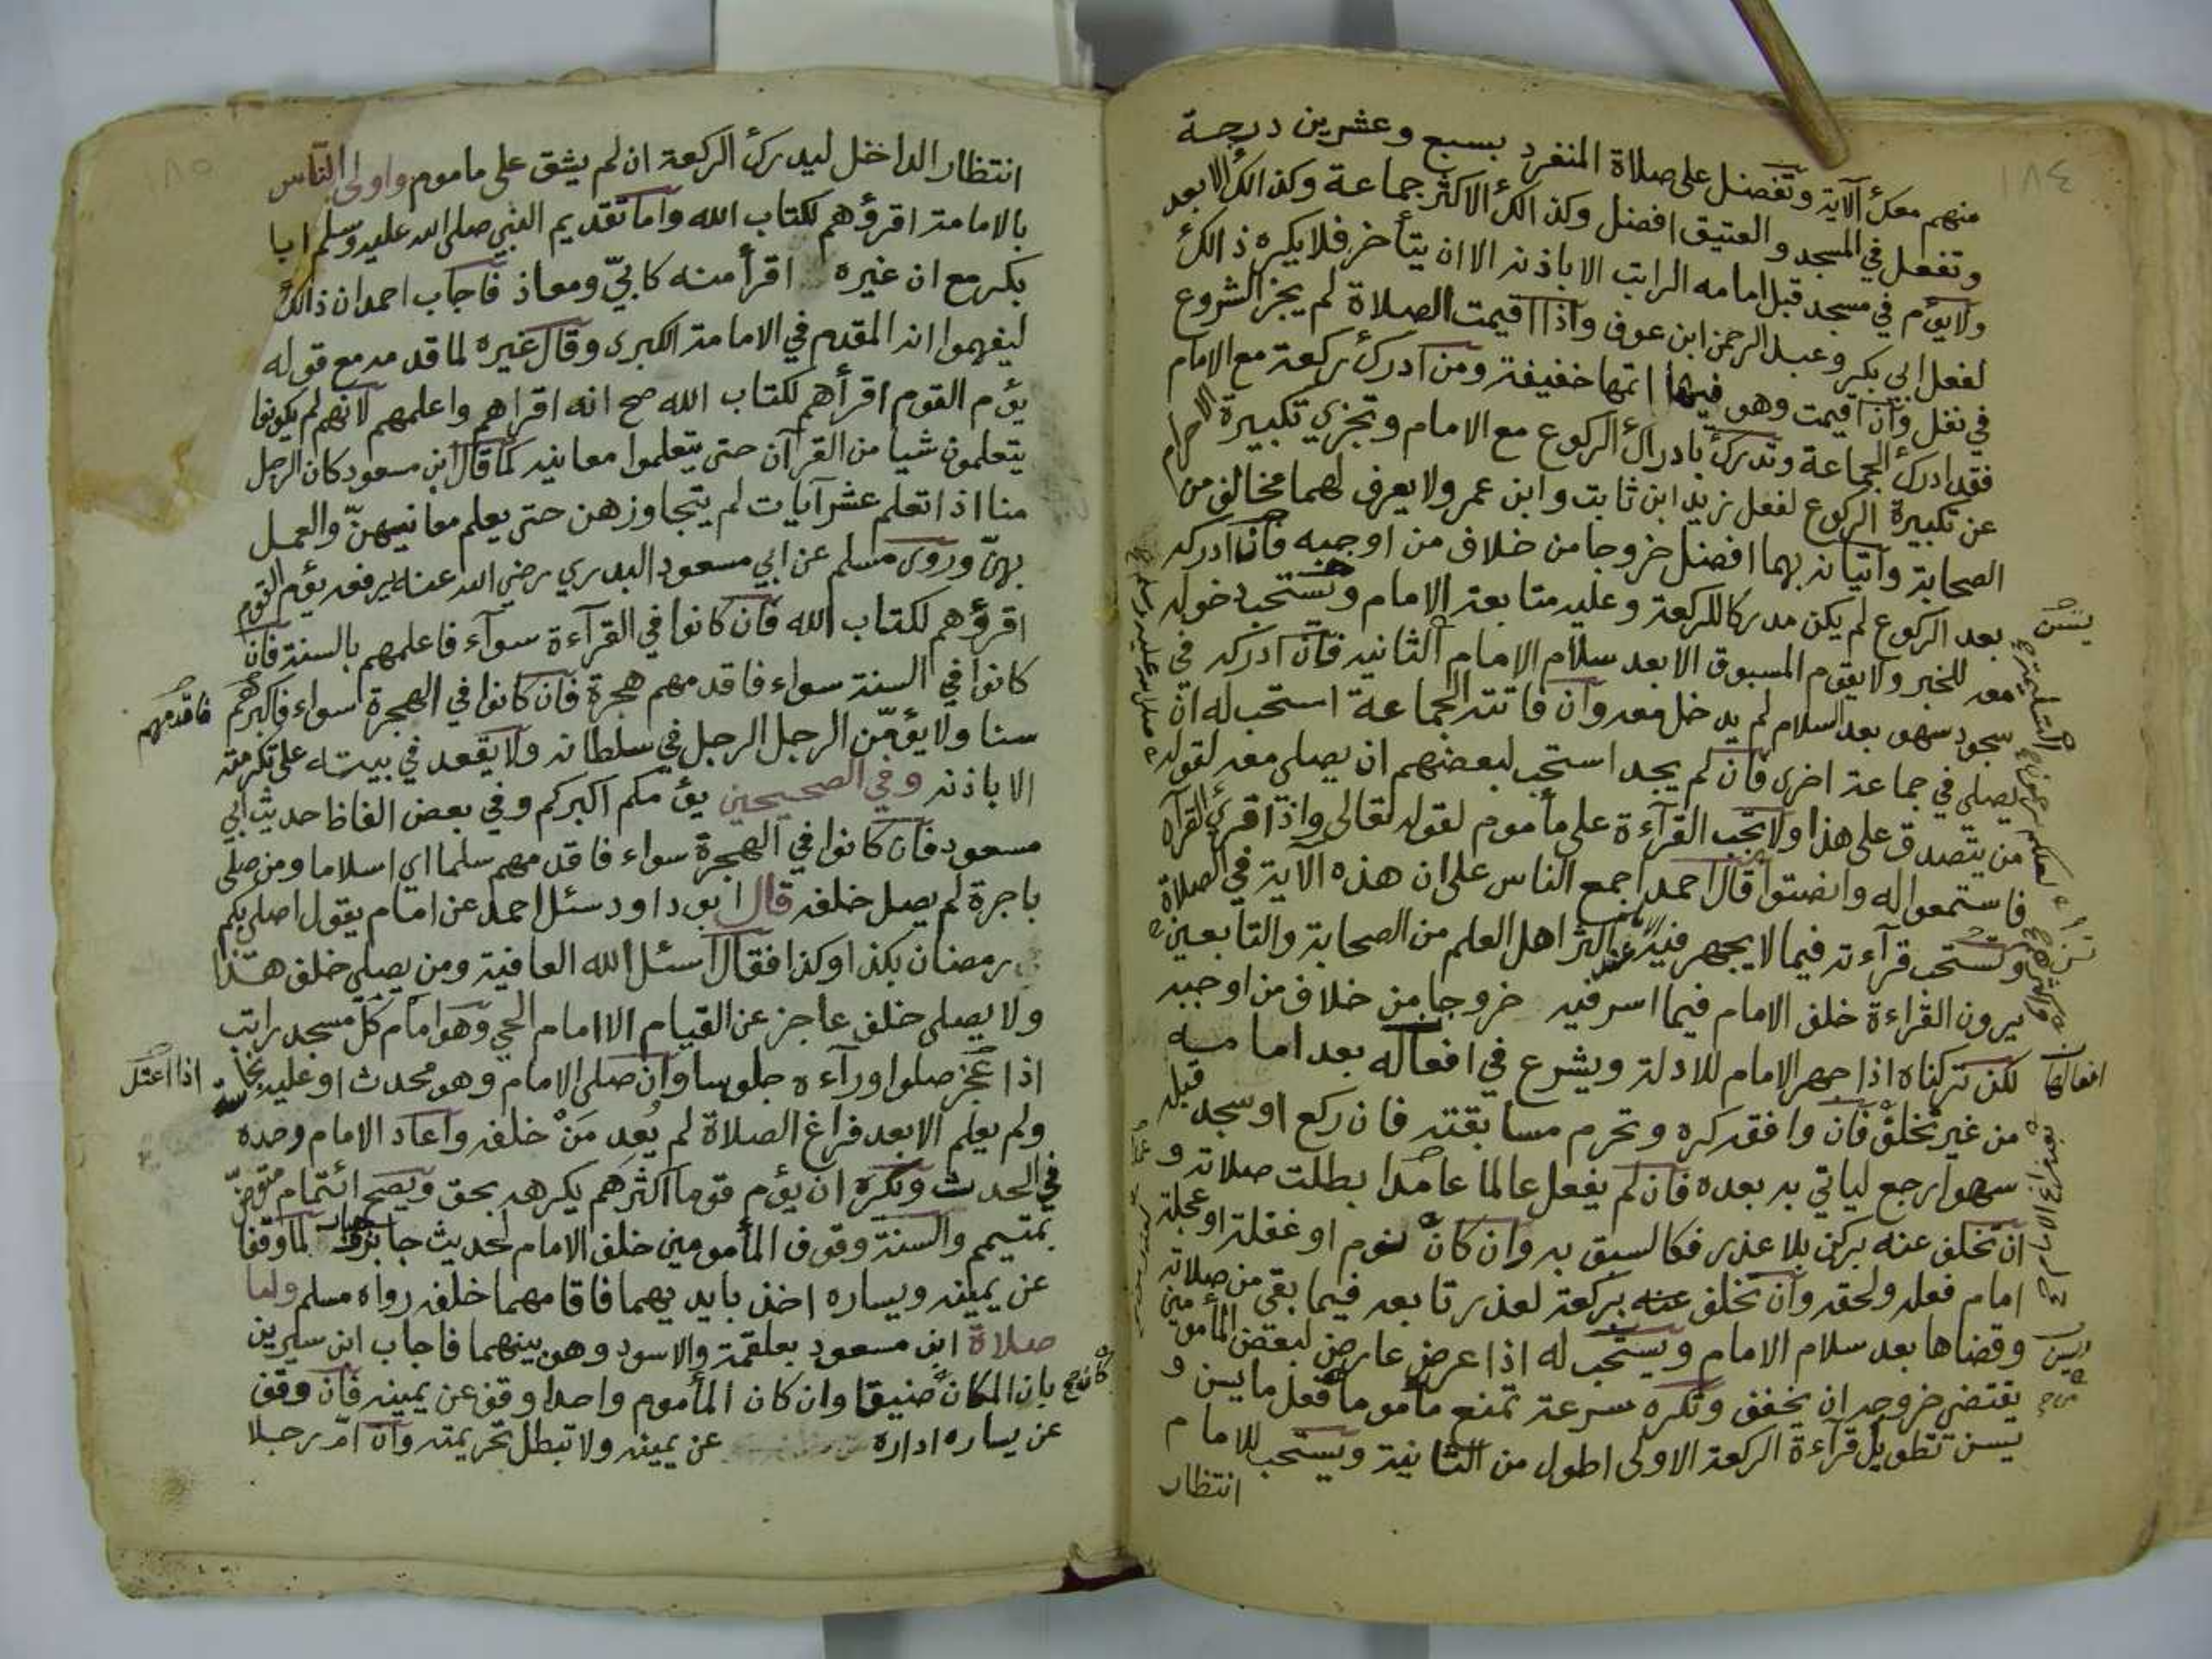 ١٨٤
منهم معك الآية وتفضل على صلاة المنفرد بسبع وعشرين درجة
وتفعل في المسجد والعتيق افضل وكذالك الاكثر جماعة وكذالك الابعد
ولا يؤم في مسجد قبل امامه الراتب الا باذنه الا ان يتأخر فلا يكره ذالك
لفعل ابي بكر وعبد الرحمن ابن عوف واذا اقيمت الصلاة لم يجز الشروع
في نفل وان اقيمت وهو فيها اتمها خفيفة ومن ادرك ركعة مع الامام
فقد ادرك الجماعة وتدرك بادراك الركوع مع الامام وتجزي تكبيرة الاحرام
عن تكبيرة الركوع لفعل زيد ابن ثابت وابن عمر ولا يعرف لهما مخالف من
الصحابة واتيانه بهما افضل خروجا من خلاف من اوجبه فان ادركه
بعد الركوع لم يكن مدركا للركعة وعليه متابعة الامام ويستحب دخوله
معه للخبر ولا يقوم المسبوق الا بعد سلام الامام الثانيه فان ادركه في
سجود سهو بعد السلام لم يدخل معه وان فاتته الجماعة استحب له ان
يصلي في جماعة اخرى فان لم يجد استحب لبعضهم ان يصلي معه لقوله
من يتصدق على هذا ولا تجب القرآءة على مأموم لقوله تعالى واذا قرئ القرآن
فاستمعوا له وانصتوا قال احمد اجمع الناس على ان هذه الآية في الصلاة
وتستحب قرآءته فيما لا يجهر فيه اكثر اهل العلم من الصحابة والتابعين
يرون القراءة خلف الامام فيما اسر فيه خروجا من خلاف من اوجبه
لكن تركناه اذا جهر الامام للادلة ويشرع في افعاله بعد امامه
من غير تخلف فان وافقه كره وتحرم مسابقته فان ركع او سجد قبله
سهوا رجع لياتي به بعده فان لم يفعل عالما عامدا بطلت صلاته و
ان تخلف عنه بركن بلا عذر فكالسبق به وان كان لنوم او غفلة او عجلة
امام فعله ولحقه وان تخلف عنه بركعة لعذر تابعه فيما بقي من صلاته
وقضاها بعد سلام الامام ويستحب له اذا عرض عارض لبعض المأمومين
يقتضي خروجه ان يخفف وتكره سرعة تمنع مأموما فعل ما يسن و
يسن تطويل قرآءة الركعة الاولى اطول من الثانية ويستحب للامام
انتظار
يسن
لعلكم ترحمون
افعالها
يسن
صلى الله عليه وسلم
١٨٥
انتظار الداخل ليدرك الركعة ان لم يشق على ماموم واولى الناس
بالامامة اقرؤهم لكتاب الله واما تقديم النبي صلى الله عليه وسلم ابا
بكر مع ان غيره اقرأ منه كابيّ ومعاذ فاجاب احمد ان ذالك
ليفهموا انه المقدم في الامامة الكبرى وقال غيره لما قدمه مع قوله
يؤم القوم اقرأهم لكتاب الله صح انه اقراهم واعلمهم لانهم لم يكونوا
يتعلمون شيا من القرآن حتى يتعلموا معانيه كما قال ابن مسعود كان الرجل
منا اذا تعلم عشر آيات لم يتجاوزهن حتى يعلم معانيهنّ والعمل
بهنّ وروى مسلم عن ابي مسعود البدري رضي الله عنه يرفعه يؤم القوم
اقرؤهم لكتاب الله فان كانوا في القرآءة سوآء فاعلمهم بالسنة فان
كانوا في السنة سواء فاقدمهم هجرة فان كانوا في الهجرة سواء فاكبرهم
سنا ولا يؤمّن الرجل الرجل في سلطانه ولا يقعد في بيته على تكرمته
الا باذنه وفي الصحيحين يؤمكم اكبركم وفي بعض الفاظ حديث ابي
مسعود فان كانوا في الهجرة سواء فاقدمهم سلما اي اسلاما ومن صلى
باجرة لم يصل خلفه قال ابو داود سئل احمد عن امام يقول اصلي بكم
رمضان بكذا وكذا فقال اسئل الله العافية ومن يصلي خلف هذا
ولا يصلي خلف عاجز عن القيام الا امام الحي وهو امام كل مسجد راتب
اذا عجز صلوا ورآءه جلوسا وان صلى الامام وهو محدث او عليه نجاسة
ولم يعلم الا بعد فراغ الصلاة لم يُعِد مَنْ خلفه واعاد الامام وحده
في الحدث ويكره ان يؤم قوما اكثرهم يكرهه بحق ويصح ائتمام متوضّ
بمتيمم والسنة وقوف المأمومين خلف الامام لحديث جابر وجبار لما وقفا
عن يمينه ويساره اخذ بايديهما فاقامهما خلفه رواه مسلم واما
صلاة ابن مسعود بعلقمة والاسود وهو بينهما فاجاب ابن سيرين
بان المكان ضيقا وان كان المأموم واحدا وقف عن يمينه فان وقف
عن يساره اداره عن يمينه ولا تبطل تحريمته وان امّ رجلا
فاقدمهم
اذا اعتل
كان صح